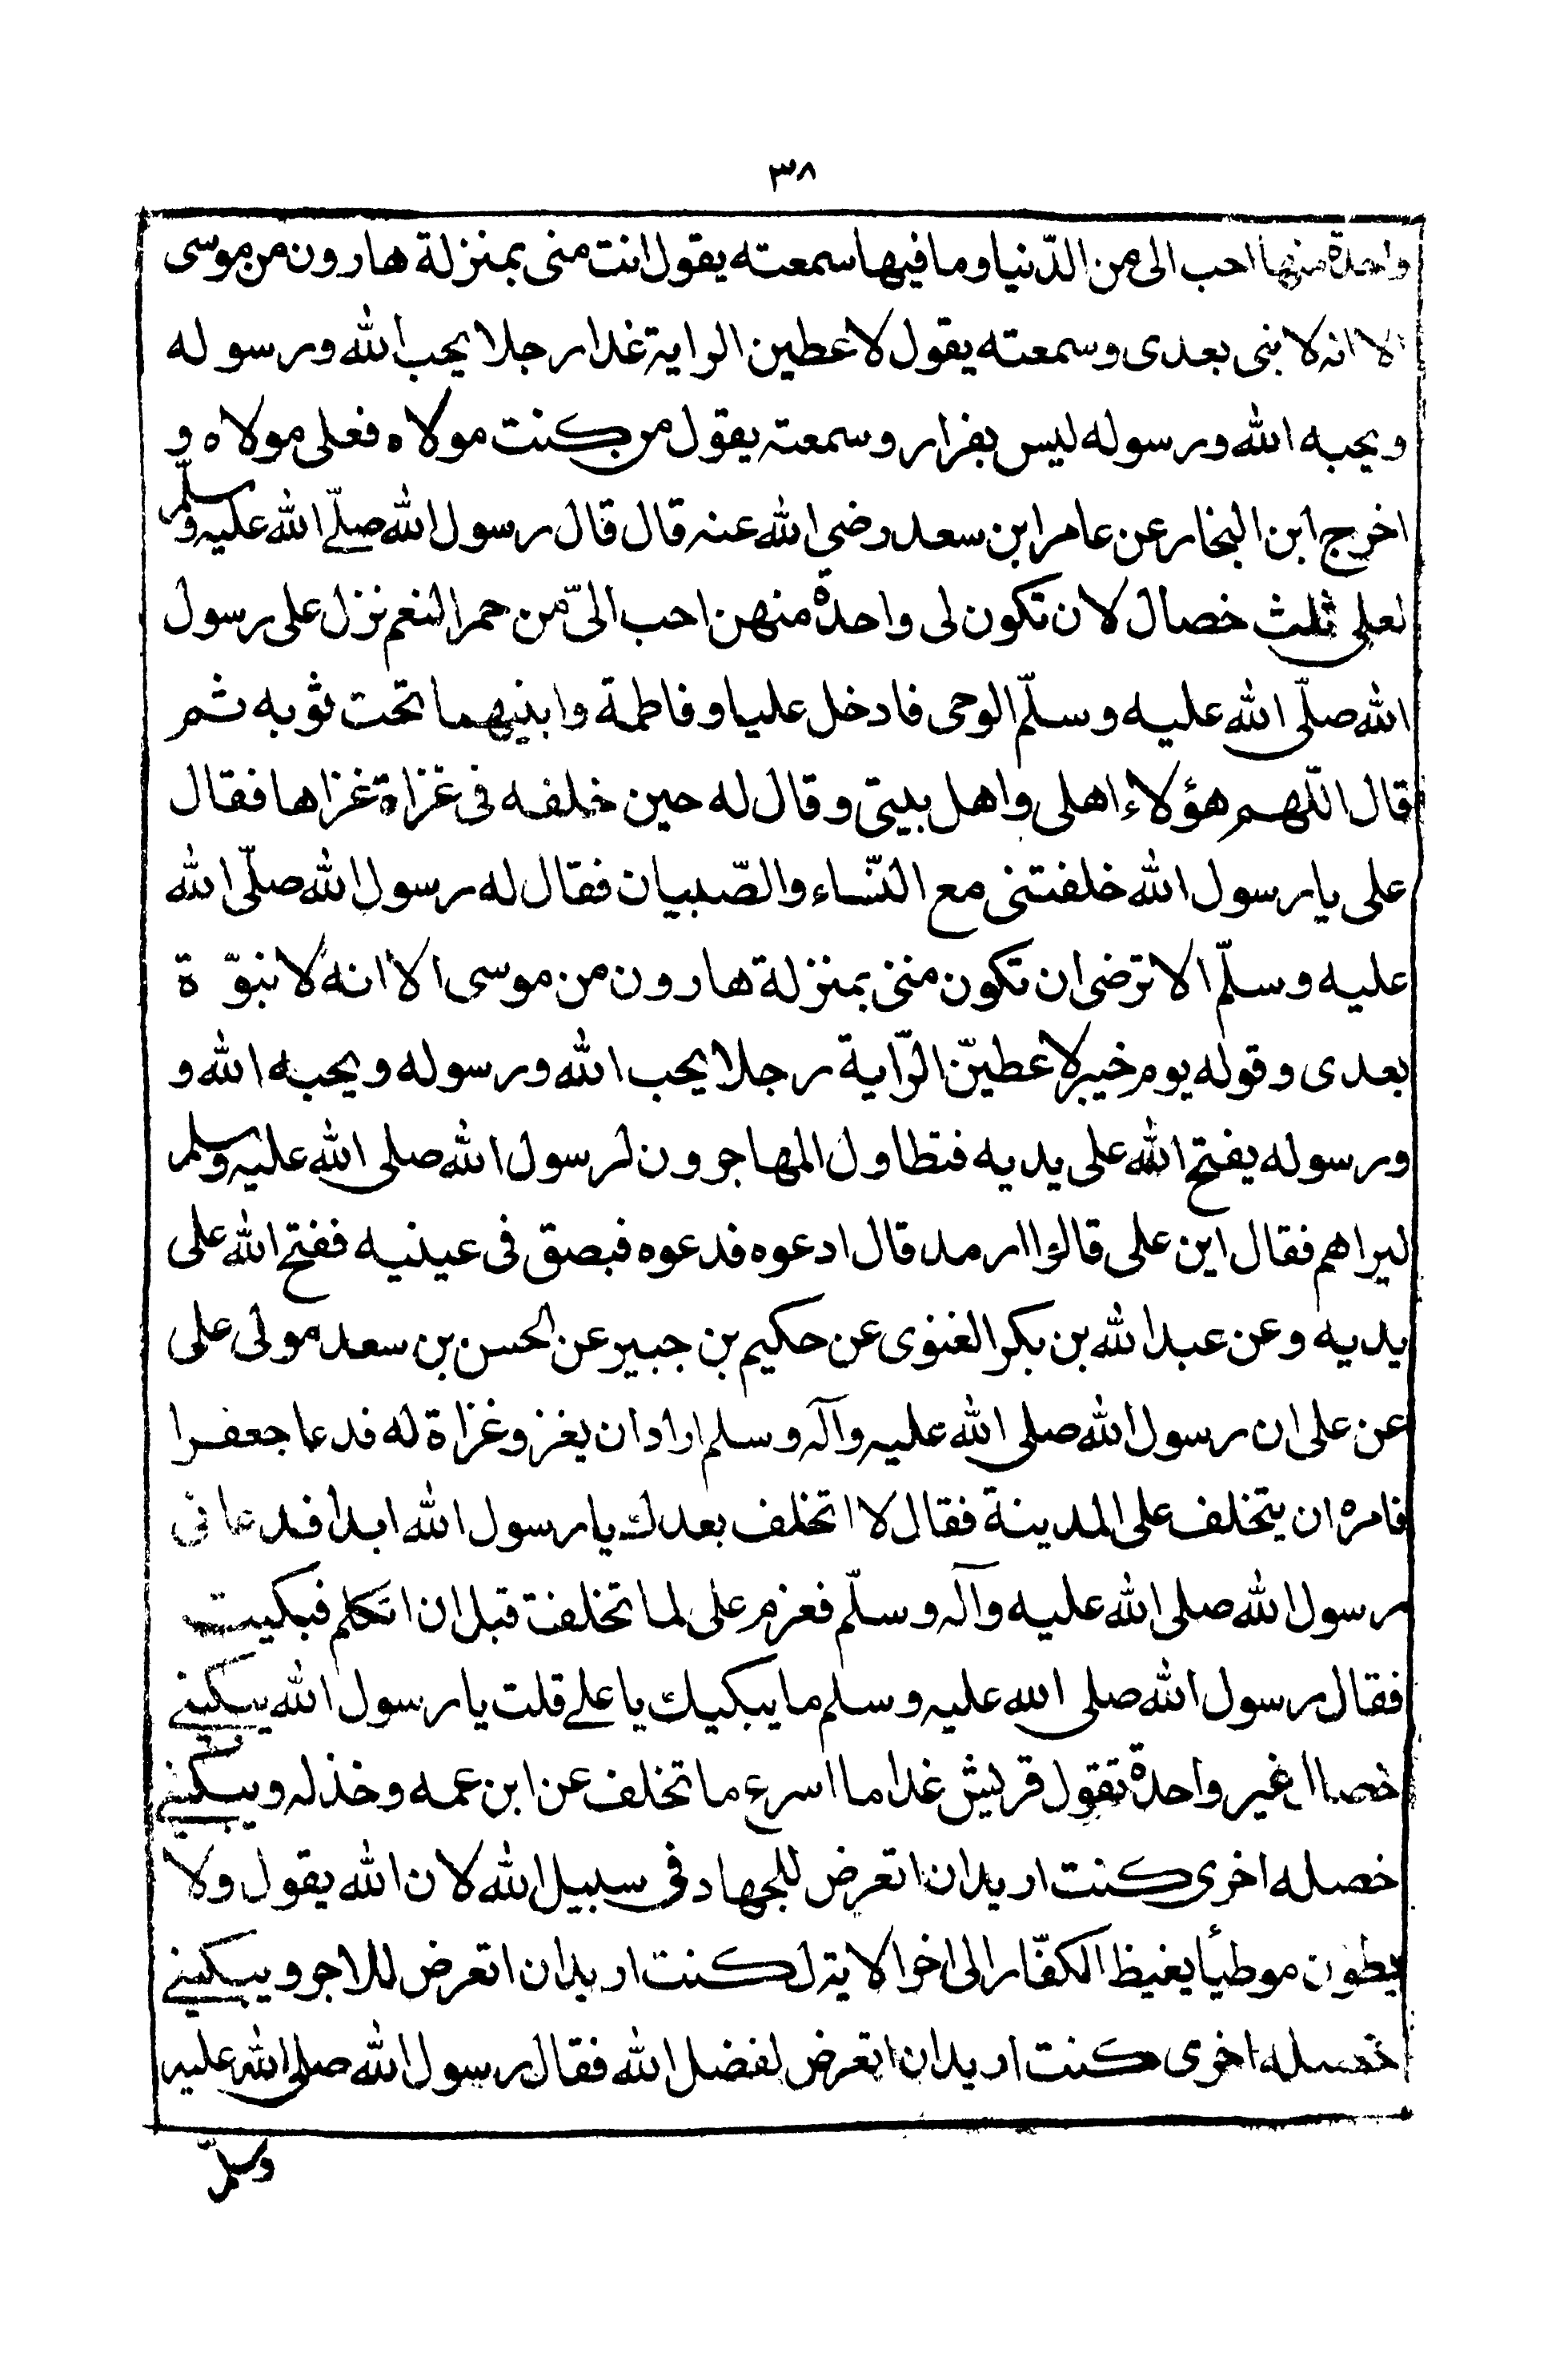 ٣٨
واحدة منها احب الى من الدّنيا وما فيها سمعته يقول انت منى بمنزلة هارون من موسى
الا انه لا نبى بعدى وسمعته يقول لاعطين الراية غدا رجلا يحب الله ورسوله
ويحبه الله ورسوله ليس بفرار وسمعته يقول من كنت مولاه فعلى مولاه و
اخرج ابن النجار عن عامر ابن سعد رضي الله عنه قال قال رسول الله صلّے الله عليه وسلّم
لعلى ثلث خصال لان تكون لى واحدة منهن احب الىّ من حمر النعم نزل على رسول
الله صلّى الله عليه وسلّم الوحى فادخل عليا وفاطمة وابنيهما تحت ثوبه ثم
قال اللّهم هؤلاء اهلى واهل بيتى وقال له حين خلفه فى غزاة غزاها فقال
على يا رسول الله خلفتنى مع النّساء والصّبيان فقال له رسول الله صلّى الله
عليه وسلّم الا ترضى ان تكون منى بمنزلة هارون من موسى الا انه لا نبوّة
بعدى وقوله يوم خيبر لاعطينّ الرّاية رجلا يحب الله ورسوله ويحبه الله و
ورسوله يفتح الله على يديه فتطاول المهاجرون لرسول الله صلى الله عليه وسلم
ليراهم فقال اين على قالوا ارمد قال ادعوه فدعوه فبصق فى عينيه ففتح الله على
يديه وعن عبد الله بن بكر الغنوى عن حكيم بن جبير عن الحسن بن سعد مولى على
عن على ان رسول الله صلى الله عليه وآله وسلم اراد ان يغزو غزاة له فدعا جعفرا
فامره ان يتخلف على المدينة فقال لا اتخلف بعدك يا رسول الله ابدا فدعانى
رسول الله صلى الله عليه وآله وسلّم فعزم على لما تخلفت قبل ان اتكلم فبكيت
فقال رسول الله صلى الله عليه وسلم ما يبكيك يا علے قلت يا رسول الله يبكينے
خصاا غير واحدة تقول قريش غدا ما اسرع ما تخلف عن ابن عمه وخذله ويبكينے
خصله اخرى كنت اريد ان اتعرض للجهاد فى سبيل الله لان الله يقول ولا
يطون موطيًا يغيظ الكفّار الى اخر الاية لكنت اريد ان اتعرض للاجر ويبكينے
خصله اخرى كنت اريد ان اتعرض لفضل الله فقال رسول الله صلى الله عليه
وسلّم